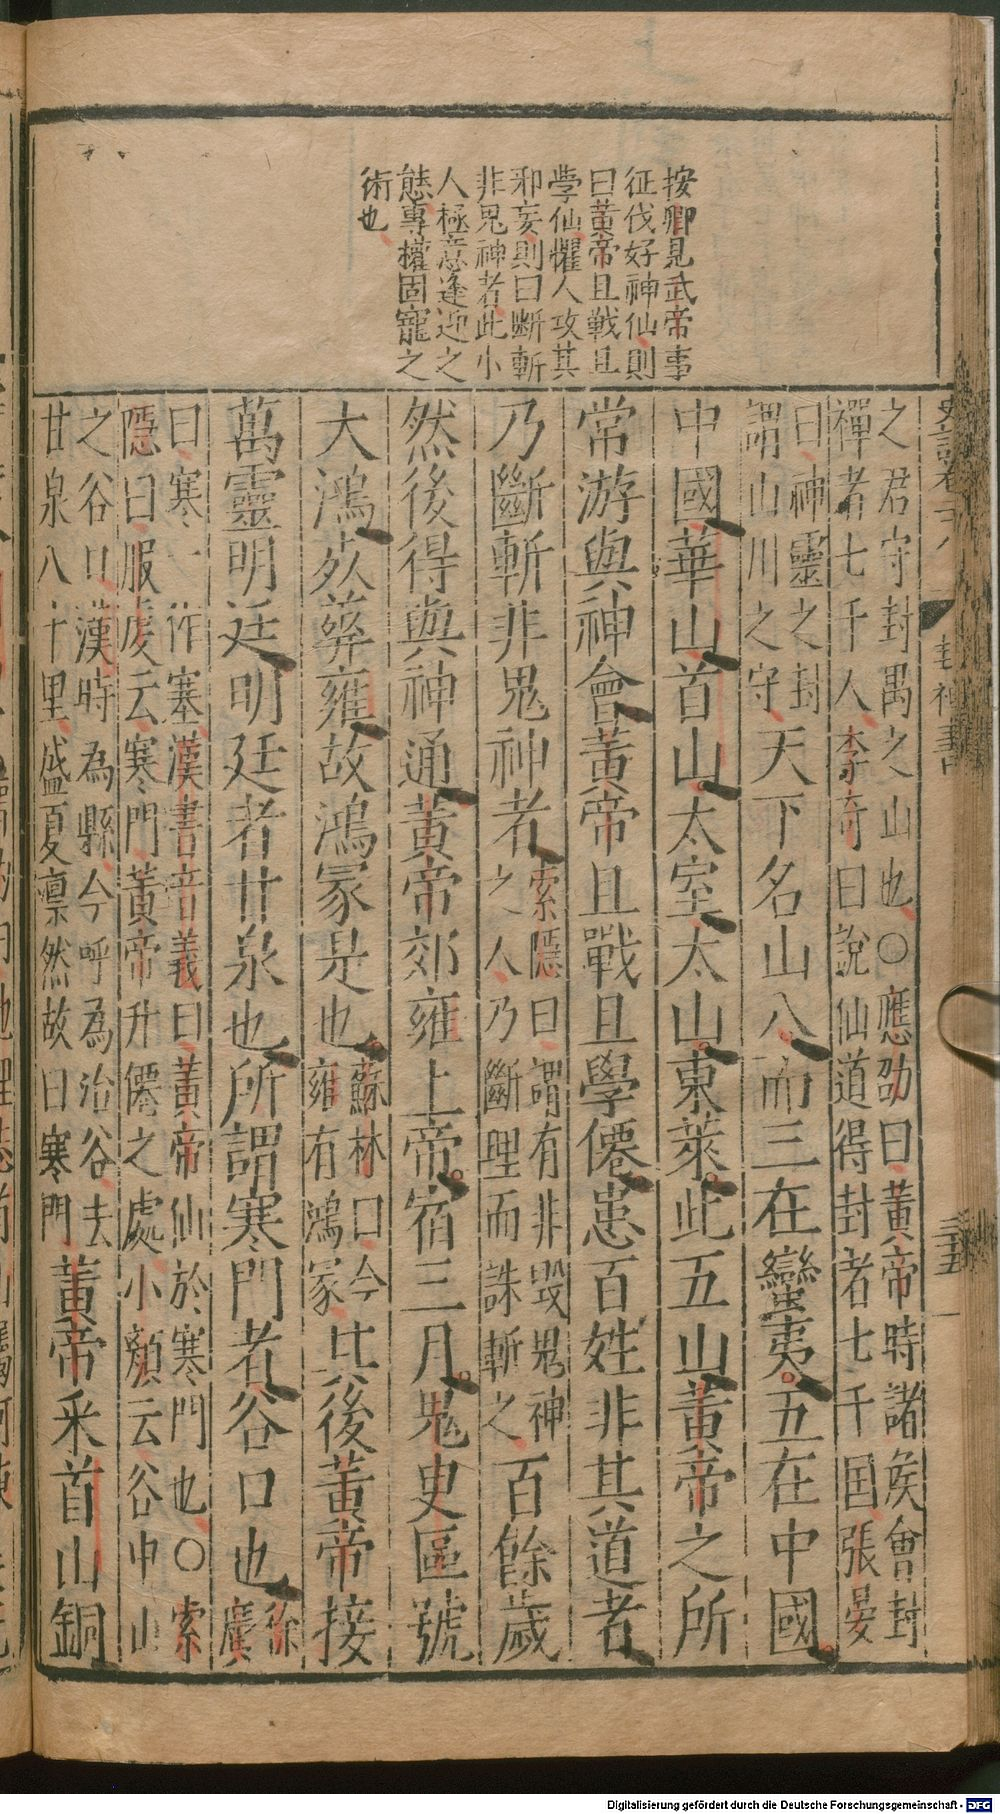 按卿見武帝事
征伐好神仙則
曰黃帝且戰且
學仙懼人攻其
邪妄則曰斷斬
非鬼神者此小
人極意逢迎之
態專權固寵之
術也
之君守封禺之山也○應劭曰黃帝時諸侯會封
禪者七千人李奇曰說仙道得封者七千國張晏
曰神靈之封
謂山川之守
天下名山八而三在蠻夷五在中國
中國華山首山太室太山東萊此五山黃帝之所
常游與神會黃帝且戰且學僊患百姓非其道者
乃斷斬非鬼神者
索隱曰謂有非毀鬼神
之人乃斷理而誅斬之
百餘歲
然後得與神通黃帝郊雍上帝宿三月鬼臾區號
大鴻死葬雍故鴻冢是也
蘇林曰今
雍有鴻冢
其後黃帝接
萬靈明廷明廷者甘泉也所謂寒門者谷口也
徐
廣
曰寒一作塞漢書音義曰黃帝仙於寒門也○索
隱曰服虔云寒門黃帝升僊之處小顏云谷中山
之谷口漢時為縣今呼為治谷去
甘泉八十里盛夏凜然故曰寒門
黃帝采首山銅
封禪書
三五
Digitalisierung gefördert durch die Deutsche Forschungsgemeinschaft - DFG